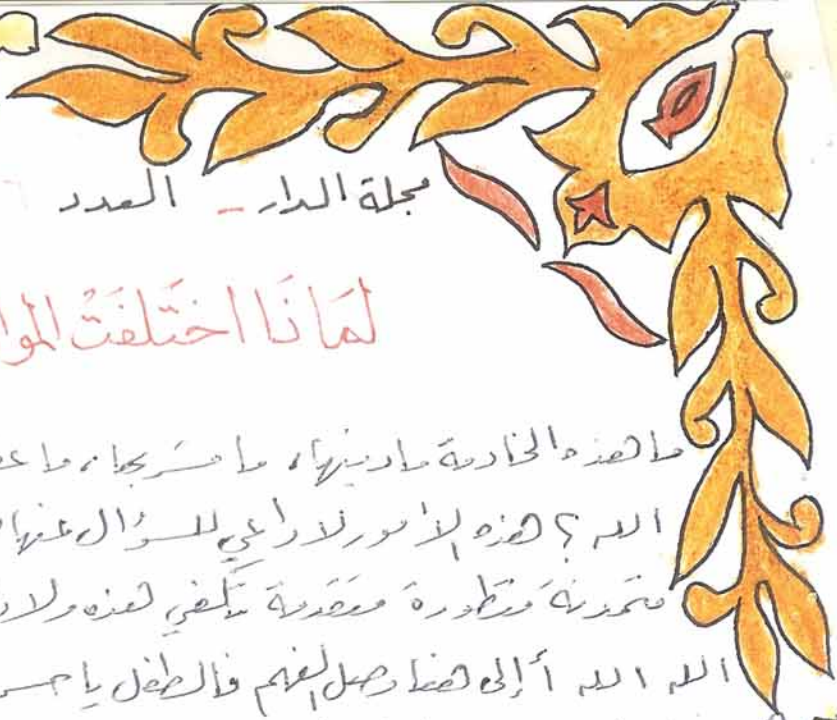 مجلة الدار - العدد
لمَاذَا اختَلفَتْ الموا
ما هذه الخادمة ما دينها، ما مشربها، ما عق
الله؟ هذه الأمور لا داعي للسؤال عنها
متمدنة متطورة متقدمة تكفي هذه ولا
الله الله أإلى هنا وصل الفهم فالطفل يا